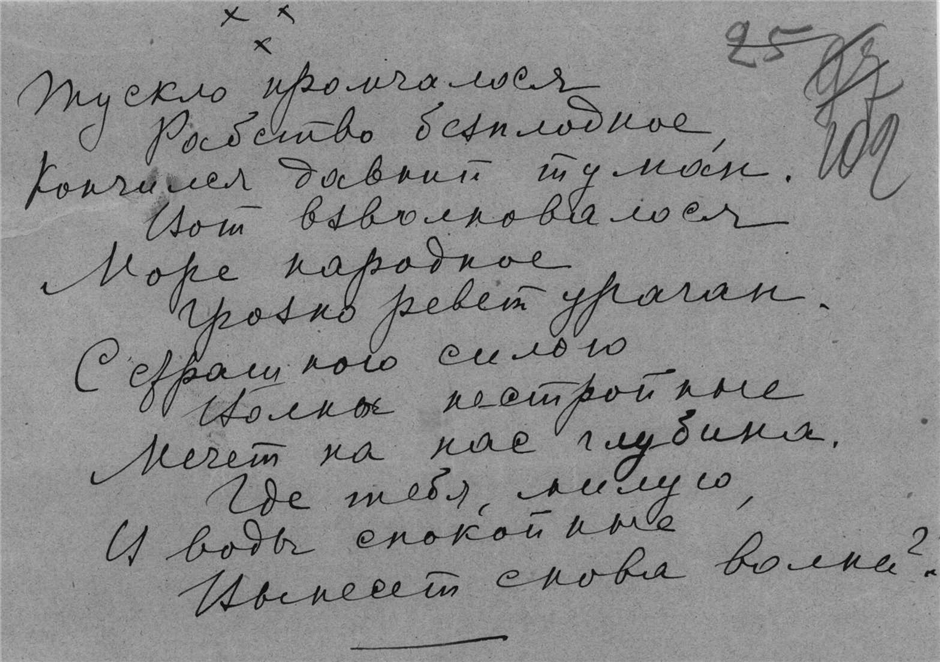 x x
x
25 97
102
Тускло промчалося
Рабство безплодное,
Кончился давний туман.
Вот взволновалося
Море народное
Грозно ревет ураган.
С страшною силою
Волны нестройные
Мечет на нас глубина.
Где тебя, милую,
В воды спокойные
Вынесет снова волна?